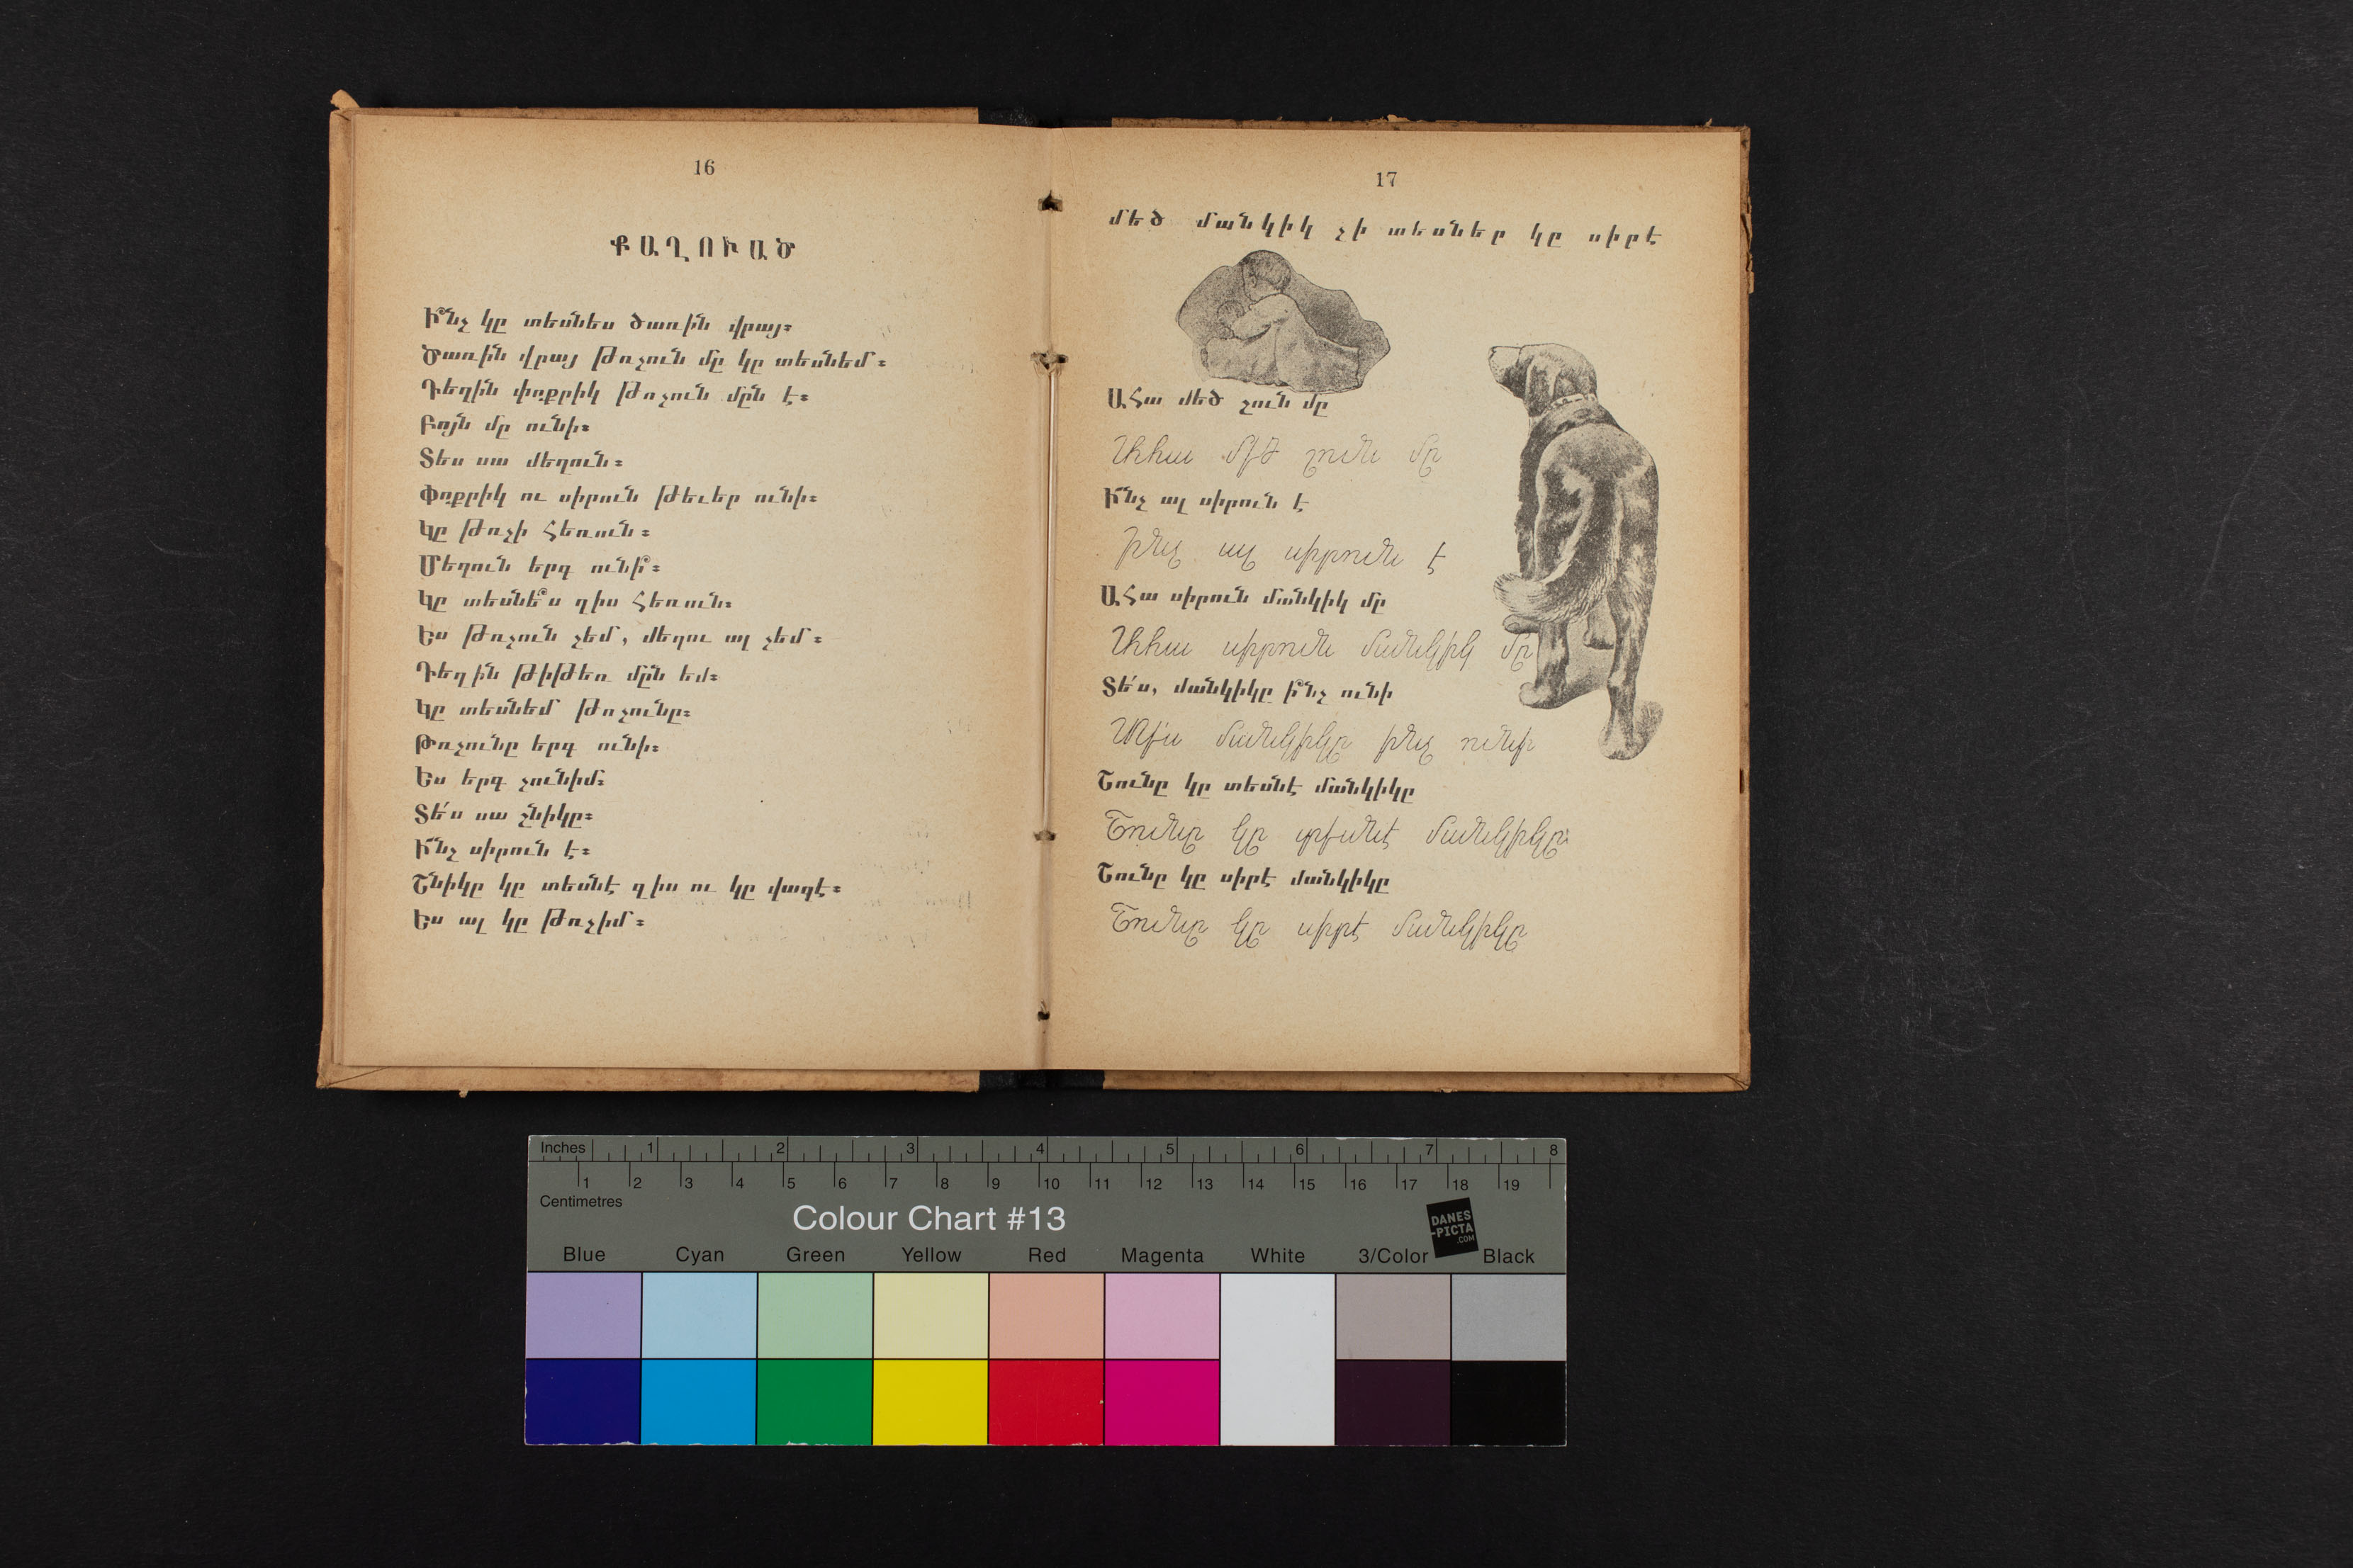 16
ՔԱՂՈՒԱԾ
Ի՞նչ կը տեսնես ծառին վրայ։
Ծառին վրայ թռչուն մը կը տեսնեմ։
Դեղին փոքրիկ թռչուն մըն է։
Բոյն մը ունի։
Տես սա մեղուն։
Փոքրիկ ու սիրուն թեւեր ունի։
Կը թռչի հեռուն։
Մեղուն երգ ունի՞։
Կը տեսնե՞ս զիս հեռուն։
Ես թռչուն չեմ, մեղու ալ չեմ։
Դեղին թիթեռ մըն եմ։
Կը տեսնեմ թռչունը։
Թռչունը երգ ունի։
Ես երգ չունիմ։
Տե՛ս սա շնիկը։
Ի՜նչ սիրուն է։
Շնիկը կը տեսնէ զիս ու կը վազէ։
Ես ալ կը թռչիմ։
17
մեծ մանկիկ չի տեսներ կը սիրէ
Ահա մեծ շուն մը
Ահա մեծ շուն մը
Ի՜նչ ալ սիրուն է
Ինչ ալ սիրուն է
Ահա սիրուն մանկիկ մը
Ահա սիրուն մանկիկ մը
Տե՛ս, մանկիկը ի՞նչ ունի
Տե՛ս մանկիկը ինչ ունի
Շունը կը տեսնէ մանկիկը
Շունը կը տեսնէ մանկիկը։
Շունը կը սիրէ մանկիկը
Շունը կը սիրէ մանկիկը
Inches 1 2 3 4 5 6 7 8
1 2 3 4 5 6 7 8 9 10 11 12 13 14 15 16 17 18 19
Centimetres
Colour Chart #13
DANES
-PICTA
.COM
Blue Cyan Green Yellow Red Magenta White 3/Color Black